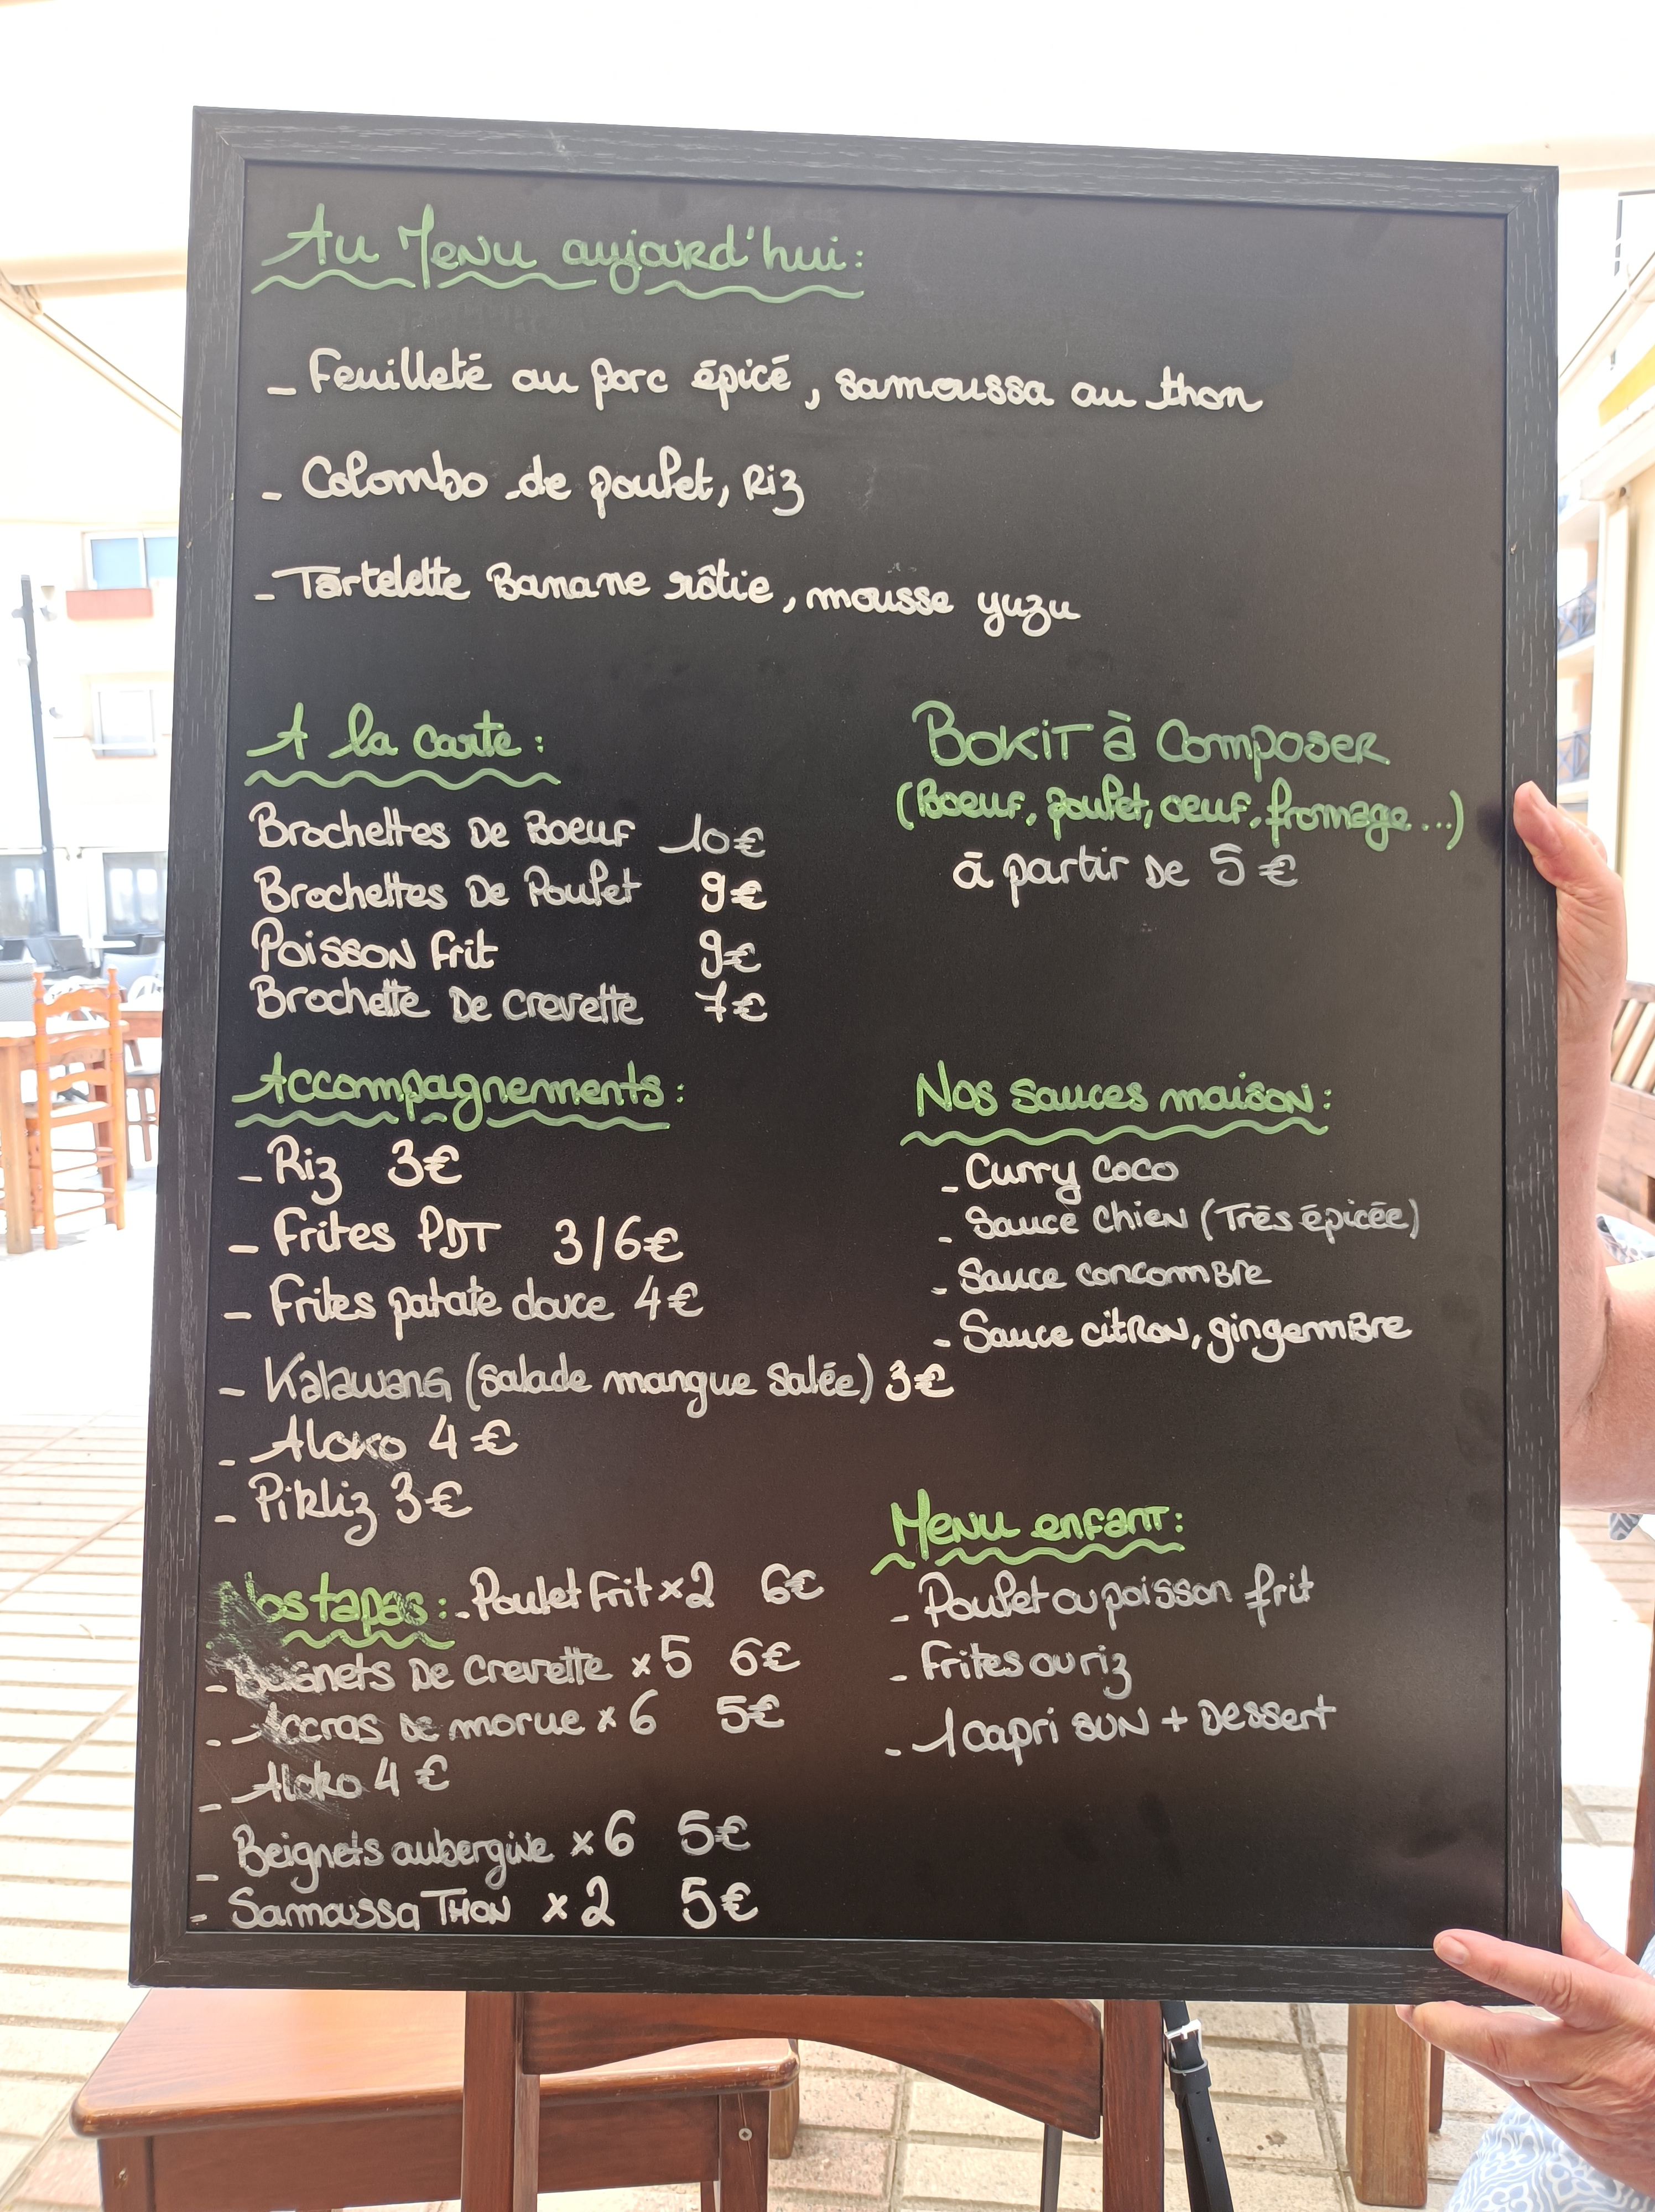 Au Menu aujourd'hui :
- Feuilleté au porc épicé, samoussa au thon
- Colombo de poulet, Riz
- Tartelette Banane rôtie, mousse yuzu
A la carte :
Brochettes De Boeuf 10€
Brochettes De Poulet 9€
Poisson frit 9€
Brochette De crevette 7€
Bokit à Composer
(Boeuf, poulet, oeuf, fromage...)
à partir De 5 €
Accompagnements :
- Riz 3€
- Frites PDT 3/6€
- Frites patate douce 4€
- Kalawang (salade mangue salée) 3€
- Aloko 4 €
- Pikliz 3€
Nos sauces maison :
- Curry coco
- Sauce chien (Très épicée)
- Sauce concombre
- Sauce citron, gingembre
Nos tapas : - Poulet frit x2 6€
- Beignets De crevette x5 6€
- Accras de morue x6 5€
- Aloko 4 €
- Beignets aubergine x6 5€
- Samoussa Thon x2 5€
Menu enfant :
- Poulet ou poisson frit
- Frites ou riz
- 1 capri sun + Dessert